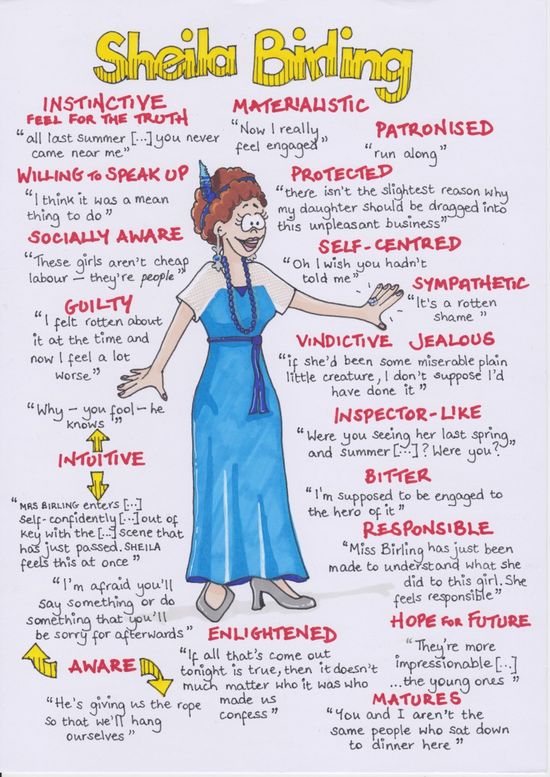 Sheila Birling
INSTINCTIVE
FEEL FOR THE TRUTH
"all last summer [...] you never
came near me"
WILLING TO SPEAK UP
"I think it was a mean
thing to do"
SOCIALLY AWARE
"These girls aren't cheap
labour – they're people"
GUILTY
"I felt rotten about
it at the time and
now I feel a lot
worse"
"Why – you fool – he
knows"
INTUITIVE
"MRS BIRLING enters [...]
self-confidently [...] out of
key with the [...] scene that
has just passed. SHEILA
feels this at once"
"I'm afraid you'll
say something or do
something that you'll
be sorry for afterwards"
AWARE
"He's giving us the rope
so that we'll hang
ourselves"
MATERIALISTIC
"Now I really
feel engaged"
PATRONISED
"run along"
PROTECTED
"there isn't the slightest reason why
my daughter should be dragged into
this unpleasant business"
SELF-CENTRED
"Oh I wish you hadn't
told me"
SYMPATHETIC
"It's a rotten
shame"
VINDICTIVE JEALOUS
"if she'd been some miserable plain
little creature, I don't suppose I'd
have done it"
INSPECTOR-LIKE
"Were you seeing her last spring
and summer [...]? Were you?"
BITTER
"I'm supposed to be engaged to
the hero of it"
RESPONSIBLE
"Miss Birling has just been
made to understand what she
did to this girl. She
feels responsible"
ENLIGHTENED
"If all that's come out
tonight is true, then it doesn't
much matter who it was who
made us
confess"
HOPE FOR FUTURE
"They're more
impressionable [...]
...the young ones"
MATURES
"You and I aren't the
same people who sat down
to dinner here"